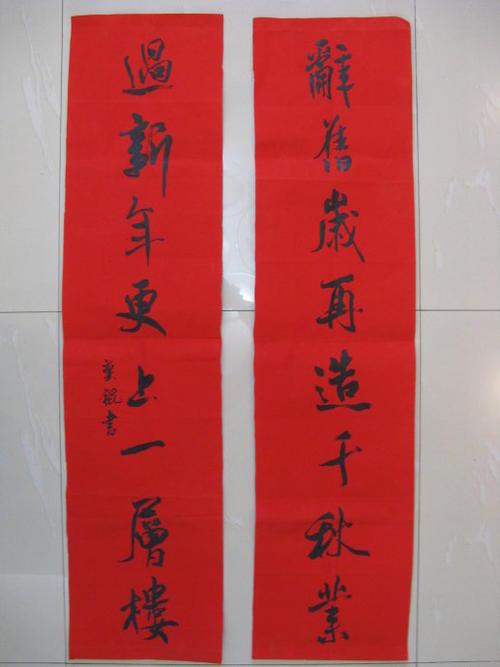 辭舊歲再造千秋業
過新年更上一層樓